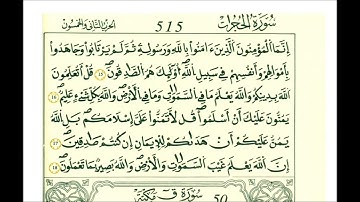 سُورَةُ الحُجُرَاتِ 515 الحِزْبُ الثَّانِي وَالْخَمْسُونَ
إِنَّمَا الْمُؤْمِنُونَ الَّذِينَ ءَامَنُوا بِاللَّهِ وَرَسُولِهِ ثُمَّ لَمْ يَرْتَابُوا وَجَاهَدُوا
بِأَمْوَالِهِمْ وَأَنفُسِهِمْ فِي سَبِيلِ اللَّهِ أُولَٰئِكَ هُمُ الصَّادِقُونَ ١٥ قُلْ أَتُعَلِّمُونَ
اللَّهَ بِدِينِكُمْ وَاللَّهُ يَعْلَمُ مَا فِي السَّمَاوَاتِ وَمَا فِي الْأَرْضِ وَاللَّهُ بِكُلِّ شَيْءٍ عَلِيمٌ ١٦
يَمُنُّونَ عَلَيْكَ أَنْ أَسْلَمُوا قُل لَّا تَمُنُّوا عَلَيَّ إِسْلَامَكُم بَلِ اللَّهُ
يَمُنُّ عَلَيْكُمْ أَنْ هَدَاكُمْ لِلْإِيمَانِ إِن كُنتُمْ صَادِقِينَ ١٧
إِنَّ اللَّهَ يَعْلَمُ غَيْبَ السَّمَاوَاتِ وَالْأَرْضِ وَاللَّهُ بَصِيرٌ بِمَا تَعْمَلُونَ ١٨
سُورَةُ ق مَكِّيَّةٌ 50